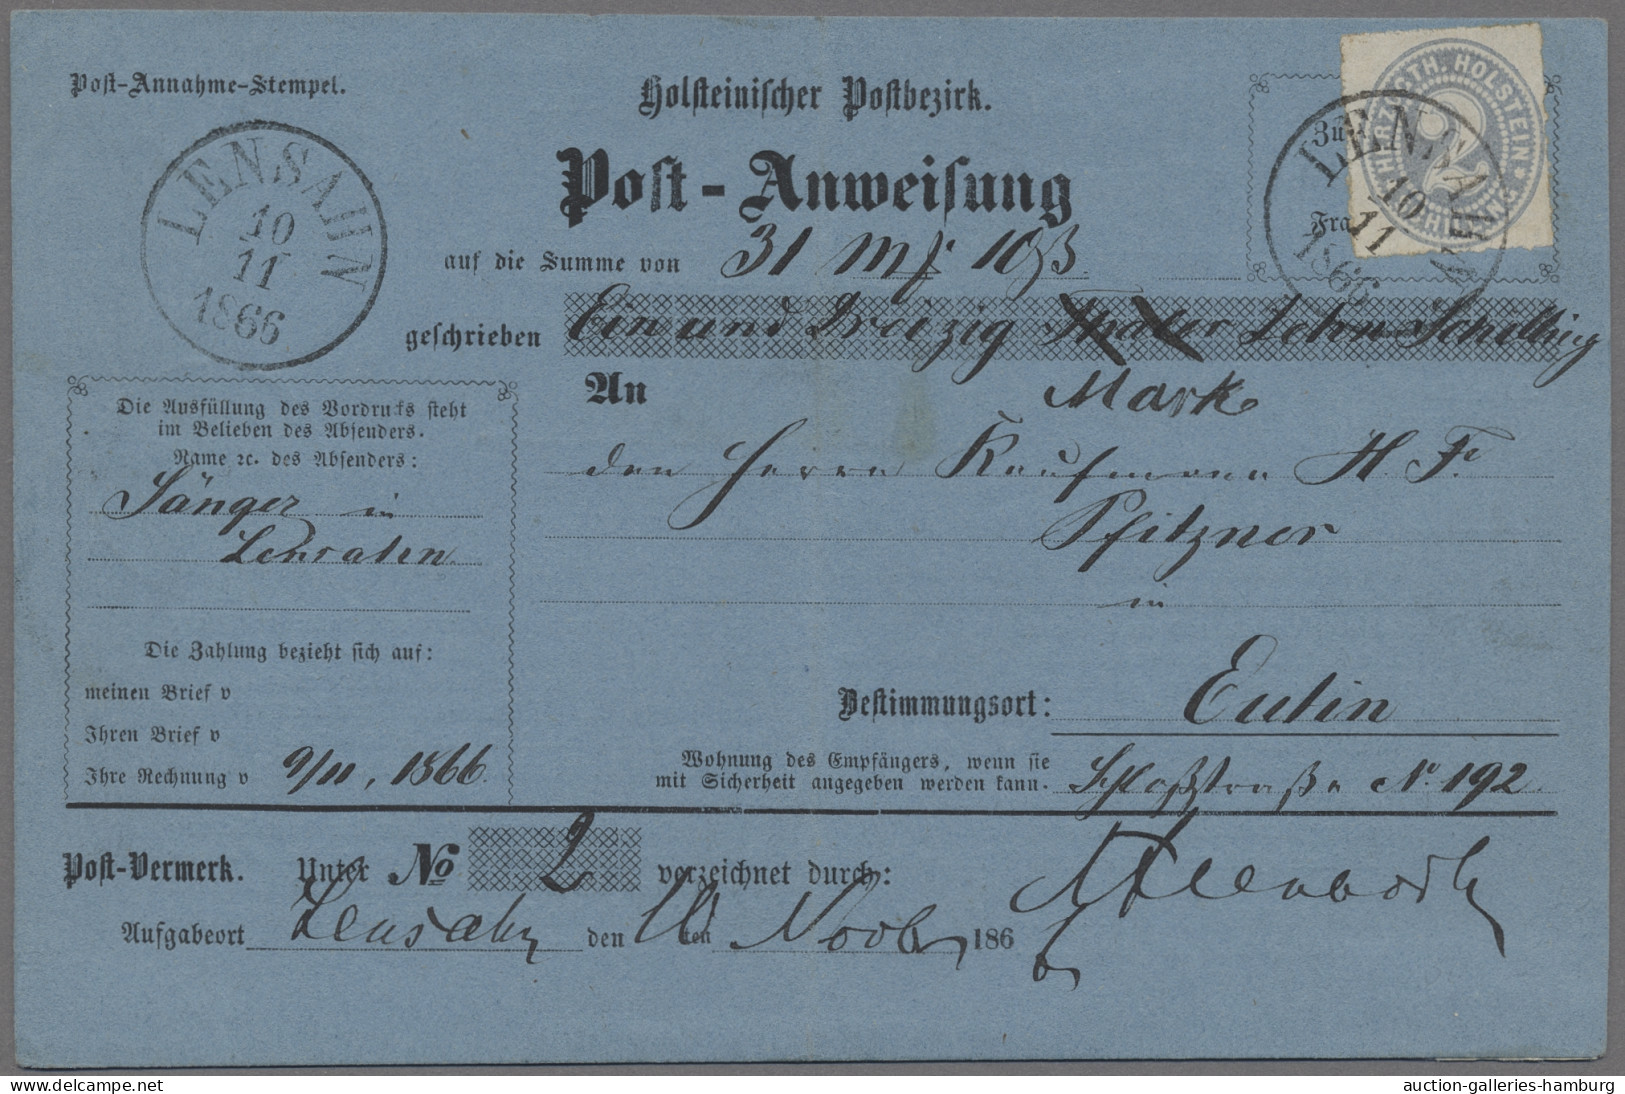 Post-Annahme-Stempel.
LENSAHN
10
11
1866
Holsteinischer Postbezirk.
Post-Anweisung
HERZOGTH. HOLSTEIN
2
LENSAHN
10
11
1866
Zu
Fra
auf die Summe von 31 Mk 10 ß.
geschrieben Ein und Dreizig Thaler Zehn Schilling
Mark
An
den Herrn Kaufmann H. F.
Pfitzner
in
Die Ausfüllung des Vordrucks steht
im Belieben des Absenders.
Name ꝛc. des Absenders:
Sänger in
Lensahn
Die Zahlung bezieht sich auf:
meinen Brief v
Ihren Brief v
Ihre Rechnung v 9/11, 1866.
Bestimmungsort: Eutin
Wohnung des Empfängers, wenn sie
mit Sicherheit angegeben werden kann. Schloßstraße No 192
Post-Vermerk. Unter No 2 verzeichnet durch:
Aufgabeort Lensahn den 10ten Novbr 1866
auction-galleries-hamburg